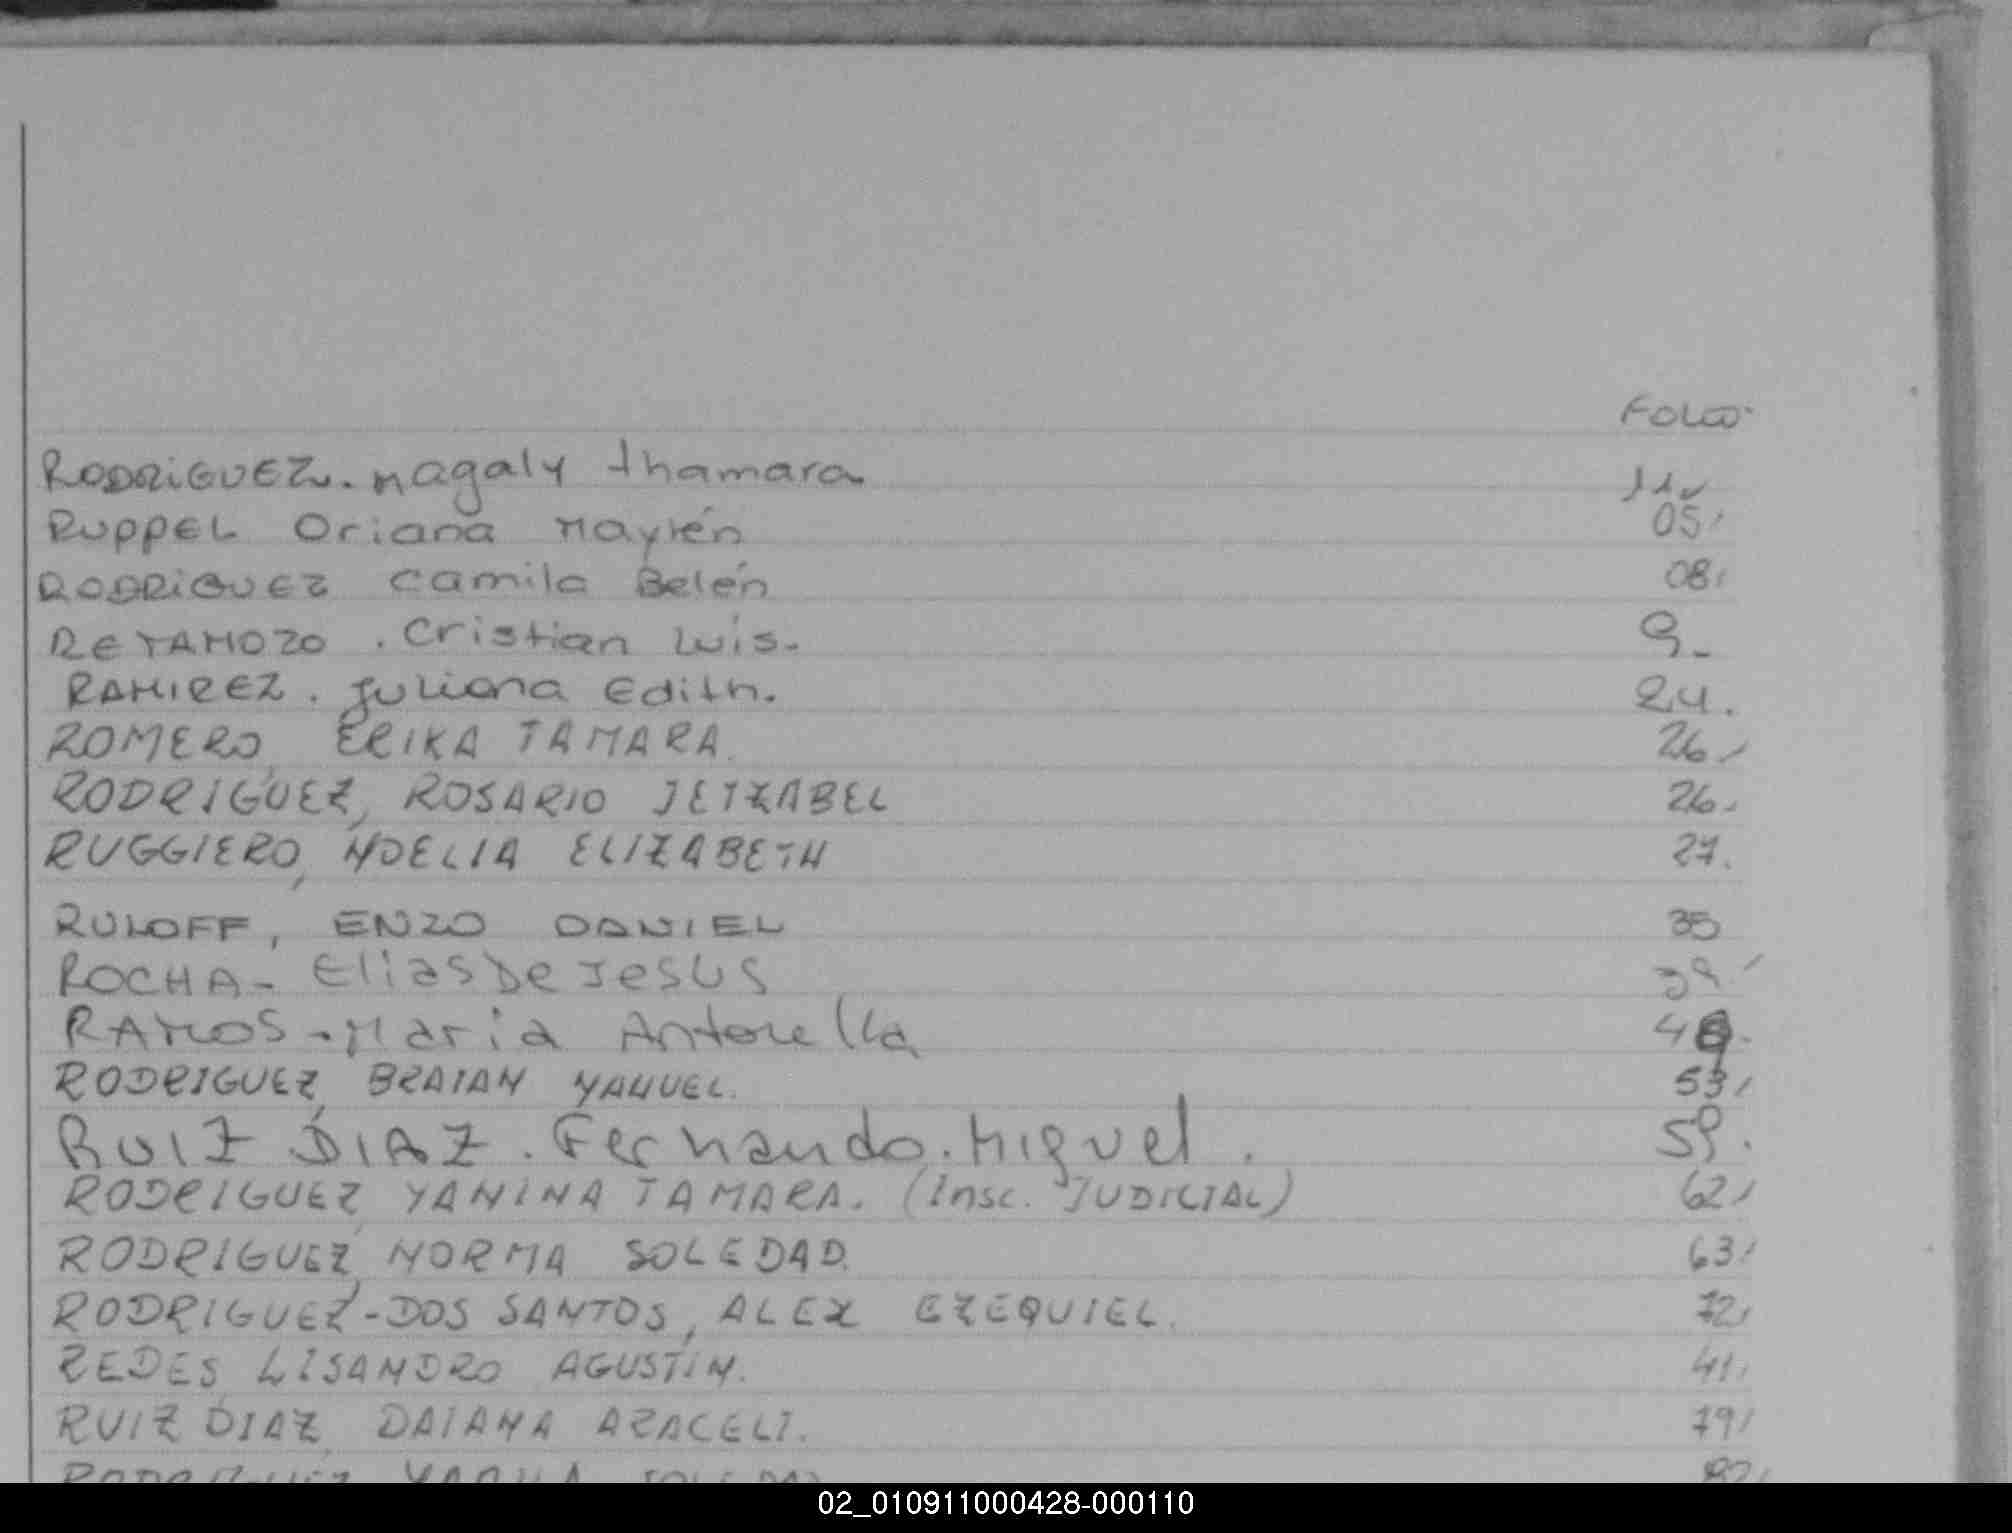 FOLIO
RODRiGUEZ. Magaly thamara 11
RUPPEL Oriana Maylén 05
RODRiGUEZ Camila Belén 08
RETAMOZO . Cristian Luis. 9_
RAMIREZ. Juliana Edith. 24.
ROMERO, ERIKA TAMARA. 26
RODRIGUEZ, ROSARIO JETZABEL 26.
RUGGIERO, NOELIA ELIZABETH 27.
RULOFF, ENZO DANIEL 35
ROCHA- Elias De Jesus 39
RAMOS-Maria Antonella
RODRIGUEZ, BRAIAN NAHUEL. 53
RUIZ DIAZ. Fernando.Miguel. 59.
RODRIGUEZ, YANINA TAMARA. (Insc. JUDICIAL) 62
RODRIGUEZ, NORMA SOLEDAD. 63
RODRIGUEZ-DOS SANTOS, ALEX EZEQUIEL. 72
REDES, LISANDRO AGUSTIN. 41
RUIZ DIAZ, DAIANA ARACELI. 79
02_010911000428-000110